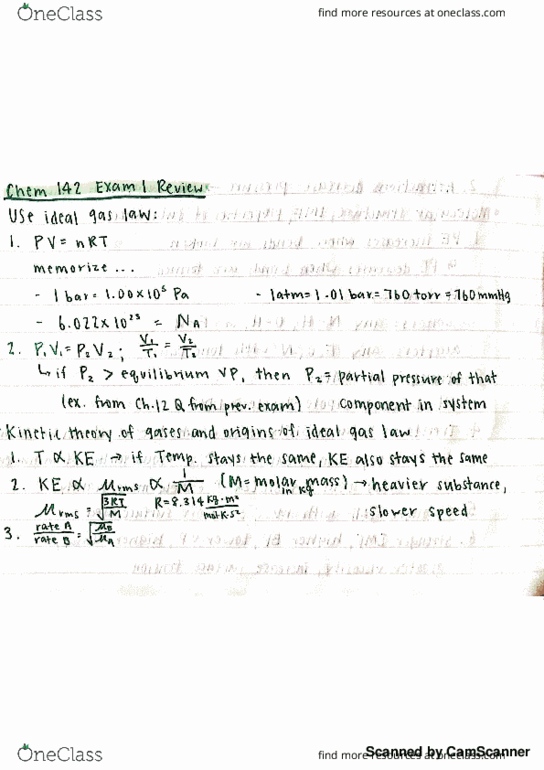 OneClass
find more resources at oneclass.com
Chem 142 Exam 1 Review
Use ideal gas law:
1. PV = nRT
memorize ...
- 1 bar = 1.00 x 10⁵ Pa - 1atm = 1.01 bar = 760 torr = 760 mmHg
- 6.022 x 10²³ = NA
2. P₁V₁ = P₂V₂ ; V₁/T₁ = V₂/T₂
↳ if P₂ > equilibrium VP, then P₂ = partial pressure of that
(ex. from Ch.12 Q from prev. exam) component in system
Kinetic theory of gases and origins of ideal gas law
1. T ∝ KE → if Temp. stays the same, KE also stays the same
2. KE ∝ μrms ∝ 1/M (M = molar mass in kg) → heavier substance,
μrms = √3RT/M R = 8.314 kg·m²/mol·K·s² slower speed
3. rate A/rate B = √MB/MA
OneClass
find more resources at oneclass.com
Scanned by CamScanner